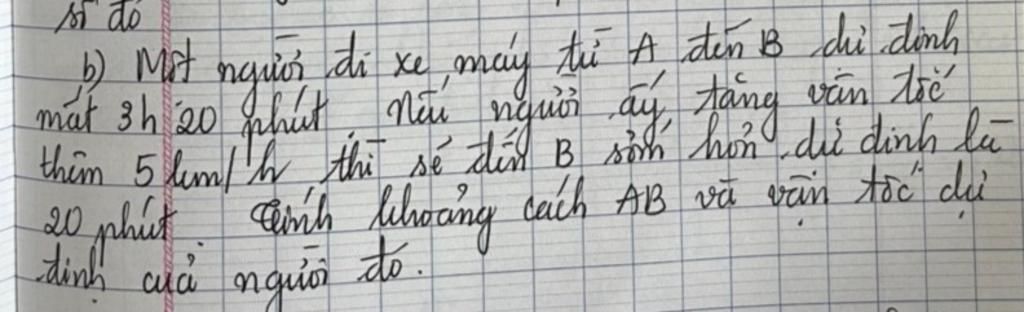 số đó
b) Một người đi xe máy từ A đến B dự định
mất 3h 20 phút. Nếu người ấy tăng vận tốc
thêm 5 km/h thì sẽ đến B sớm hơn dự định là
20 phút. Tính khoảng cách AB và vận tốc dự
định của người đó.